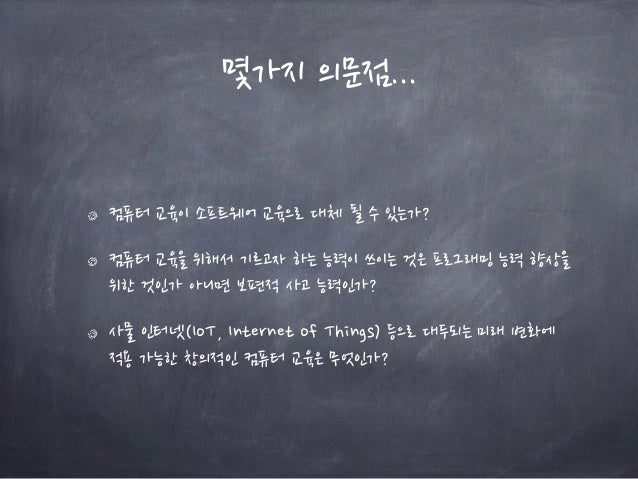 몇가지 의문점...
컴퓨터 교육이 소프트웨어 교육으로 대체 될 수 있는가?
컴퓨터 교육을 위해서 기르고자 하는 능력이 쓰이는 것은 프로그래밍 능력 향상을
위한 것인가 아니면 보편적 사고 능력인가?
사물 인터넷(IoT, Internet of Things) 등으로 대두되는 미래 변화에
적용 가능한 창의적인 컴퓨터 교육은 무엇인가?